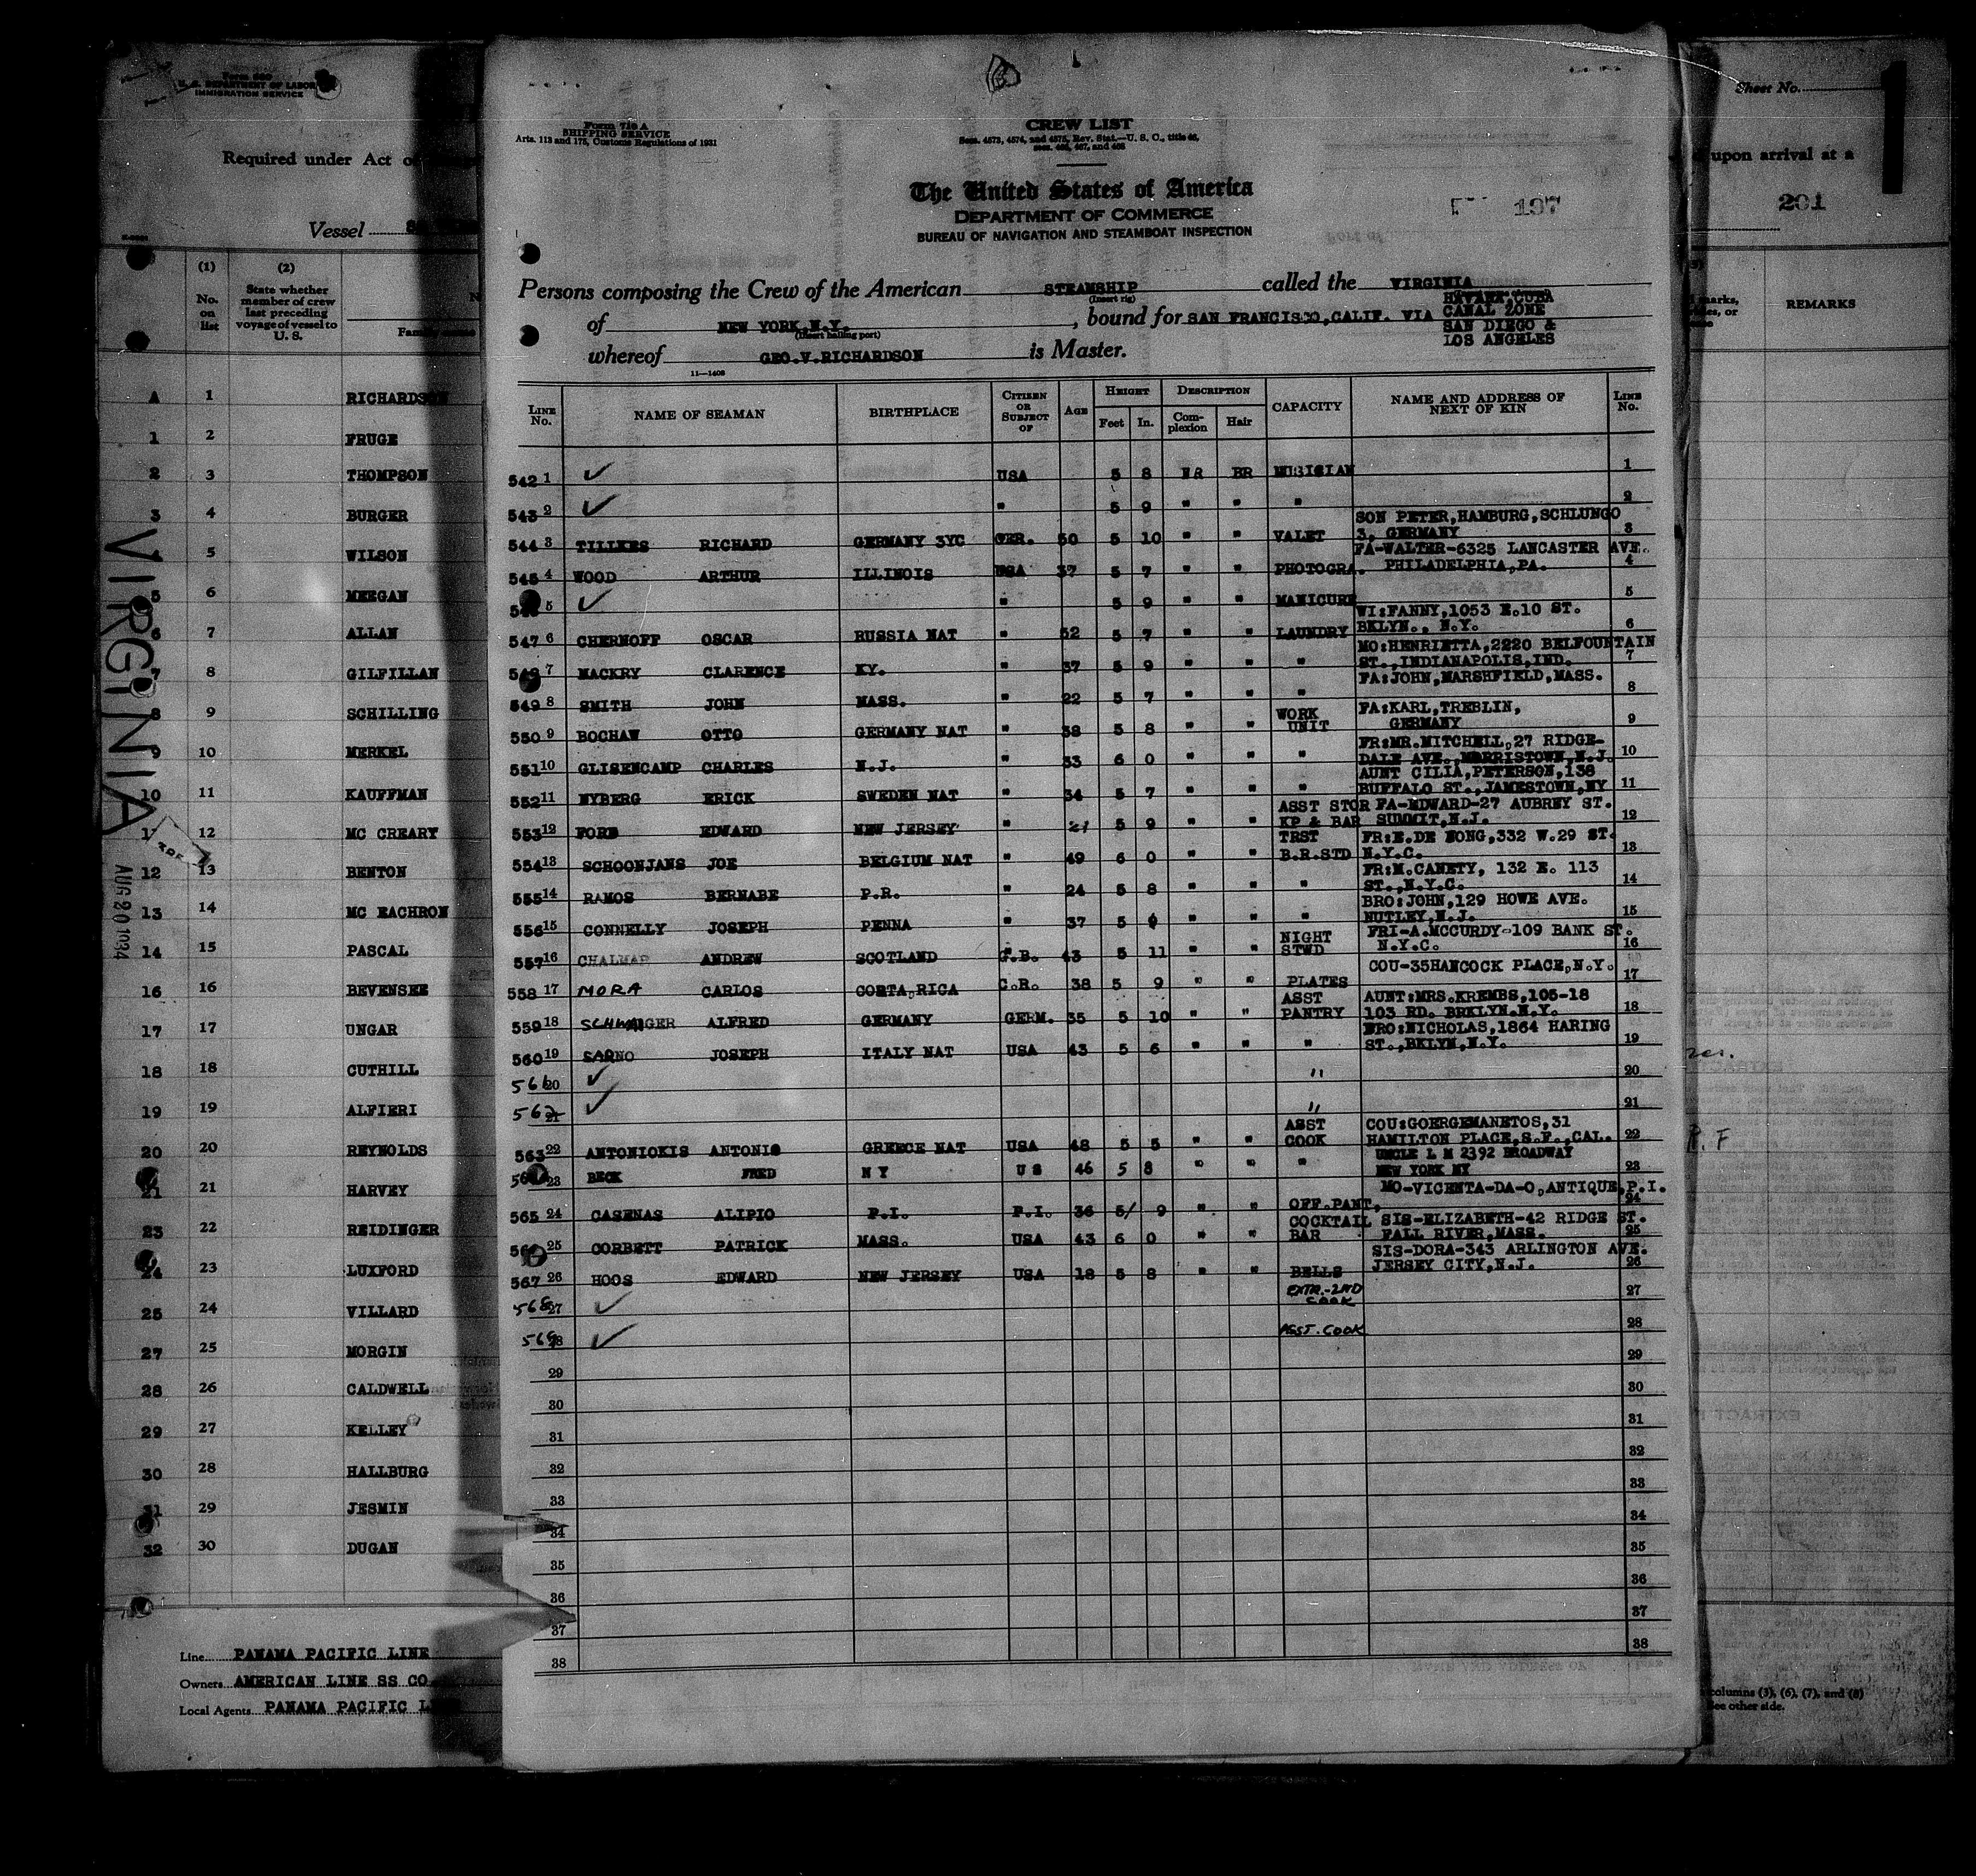 Form 680
U. S. DEPARTMENT OF LABOR
IMMIGRATION SERVICE
Required under Act of
Vessel
(1) (2)
No. on list
State whether member of crew last preceding voyage of vessel to U. S.
Family name
A 1 RICHARDSON
1 2 FRUGE
2 3 THOMPSON
3 4 BURGER
5 WILSON
5 6 MEEGAN
6 7 ALLAN
7 8 GILFILLAN
8 9 SCHILLING
9 10 MERKEL
10 11 KAUFFMAN
11 12 MC CREARY
12 13 BENTON
13 14 MC EACHRON
14 15 PASCAL
16 16 BEVENSEE
17 17 UNGAR
18 18 CUTHILL
19 19 ALFIERI
20 20 REYNOLDS
21 21 HARVEY
23 22 REIDINGER
24 23 LUXFORD
25 24 VILLARD
27 25 MORGIN
28 26 CALDWELL
29 27 KELLEY
30 28 HALLBURG
31 29 JESMIN
32 30 DUGAN
VIRGINIA
AUG 20 1934
Line PANAMA PACIFIC LINE
Owners AMERICAN LINE SS CO
Local Agents PANAMA PACIFIC
Form 710 A
SHIPPING SERVICE
Arts. 113 and 175, Customs Regulations of 1931
CREW LIST
Secs. 4573, 4574, and 4575, Rev. Stat.—U. S. C., title 46,
secs. 465, 467, and 468
The United States of America
DEPARTMENT OF COMMERCE
BUREAU OF NAVIGATION AND STEAMBOAT INSPECTION
197
Persons composing the Crew of the American STEAMSHIP called the VIRGINIA
(Insert rig)
of NEW YORK,N.Y. , bound for SAN FRANCISCO,CALIF. VIA HAVANA,CUBA
CANAL ZONE
SAN DIEGO &
LOS ANGELES
(Insert hailing port)
whereof GEO.V.RICHARDSON is Master.
11—1408
LINE No. NAME OF SEAMAN BIRTHPLACE CITIZEN OR SUBJECT OF AGE HEIGHT Feet In. DESCRIPTION Complexion Hair CAPACITY NAME AND ADDRESS OF NEXT OF KIN LINE No.
542 1 ✓ USA 5 8 BR MUSICIAN 1
543 2 ✓ " 5 9 " " " 2
544 3 TILLKES RICHARD GERMANY 3YC GER. 50 5 10 " " VALET SON PETER,HAMBURG,SCHLUNGO 3, GERMANY 3
545 4 WOOD ARTHUR ILLINOIS USA 37 5 7 " " PHOTOGRA. FA-WALTER-6325 LANCASTER AVE. PHILADELPHIA,PA. 4
5 ✓ " 5 9 " " MANICURE 5
547 6 CHERNOFF OSCAR RUSSIA NAT " 52 5 7 " " LAUNDRY WI:FANNY,1053 E.10 ST. BKLYN., N.Y. 6
548 7 MACKRY CLARENCE KY. " 37 5 9 " " " MO:HENRIETTA,2220 BELFOUNTAIN ST.,INDIANAPOLIS,IND. 7
549 8 SMITH JOHN MASS. " 22 5 7 " " " FA:JOHN,MARSHFIELD,MASS. 8
550 9 BOCHAW OTTO GERMANY NAT " 38 5 8 " " WORK UNIT FA:KARL,TREBLIN, GERMANY 9
551 10 GLISENCAMP CHARLES N.J. " 33 6 0 " " " FR:MR.MITCHELL,27 RIDGE-DALE AVE.,MORRISTOWN,N.J. 10
552 11 NYBERG ERICK SWEDEN NAT " 34 5 7 " " " AUNT CILIA,PETERSON,138 BUFFALO ST.,JAMESTOWN,NY 11
553 12 FORD EDWARD NEW JERSEY " 21 5 9 " " ASST STOR KP & BAR FA-EDWARD-27 AUBREY ST. SUMMIT,N.J. 12
554 13 SCHOONJANS JOE BELGIUM NAT " 49 6 0 " " TRST B.R.STD FR:E.DE NONG,332 W.29 ST. N.Y.C. 13
555 14 RAMOS BERNABE P.R. " 24 5 8 " " " FR:M.CANETY, 132 E. 113 ST.,N.Y.C. 14
556 15 CONNELLY JOSEPH PENNA " 37 5 " " " BRO:JOHN,129 HOWE AVE. NUTLEY,N.J. 15
557 16 CHALMAR ANDREW SCOTLAND G.B. 43 5 11 " " NIGHT STWD FRI-A.MCCURDY-109 BANK ST. N.Y.C. 16
558 17 MORA CARLOS COSTA,RICA C.R. 38 5 9 " " PLATES COU-35HANCOCK PLACE,N.Y. 17
559 18 SCHWAIGER ALFRED GERMANY GERM. 35 5 10 " " ASST PANTRY AUNT:MRS.KREMBS,105-18 103 RD. BRKLYN.N.Y. 18
560 19 SARNO JOSEPH ITALY NAT USA 43 5 6 " " " BRO:NICHOLAS,1864 HARING ST.,BKLYN,N.Y. 19
561 20 ✓ " 20
562 21 ✓ " 21
563 22 ANTONIOKIS ANTONIS GREECE NAT USA 48 5 5 " " ASST COOK COU:GOERGEMANETOS,31 HAMILTON PLACE,S.F.,CAL. 22
23 BECK FRED N Y U S 46 5 8 " " " UNCLE L M 2392 BROADWAY NEW YORK NY 23
565 24 CASENAS ALIPIO P.I. P.I. 36 5/ 9 " " OFF.PANT, MO-VICENTA-DA-O,ANTIQUE,P.I. 24
25 CORBETT PATRICK MASS. USA 43 6 0 " " COCKTAIL BAR SIS-ELIZABETH-42 RIDGE ST. FALL RIVER,MASS. 25
567 26 HOOS EDWARD NEW JERSEY USA 18 5 8 " " BELLS SIS-DORA-343 ARLINGTON AVE. JERSEY CITY,N.J. 26
568 27 ✓ EXTR.-2ND COOK 27
569 28 ✓ ASST. COOK 28
29 29
30 30
31 31
32 32
33 33
34 34
35 35
36 36
37 37
38 38
Sheet No.
1
upon arrival at a
201
REMARKS
columns (3), (6), (7), and (8)
See other side.